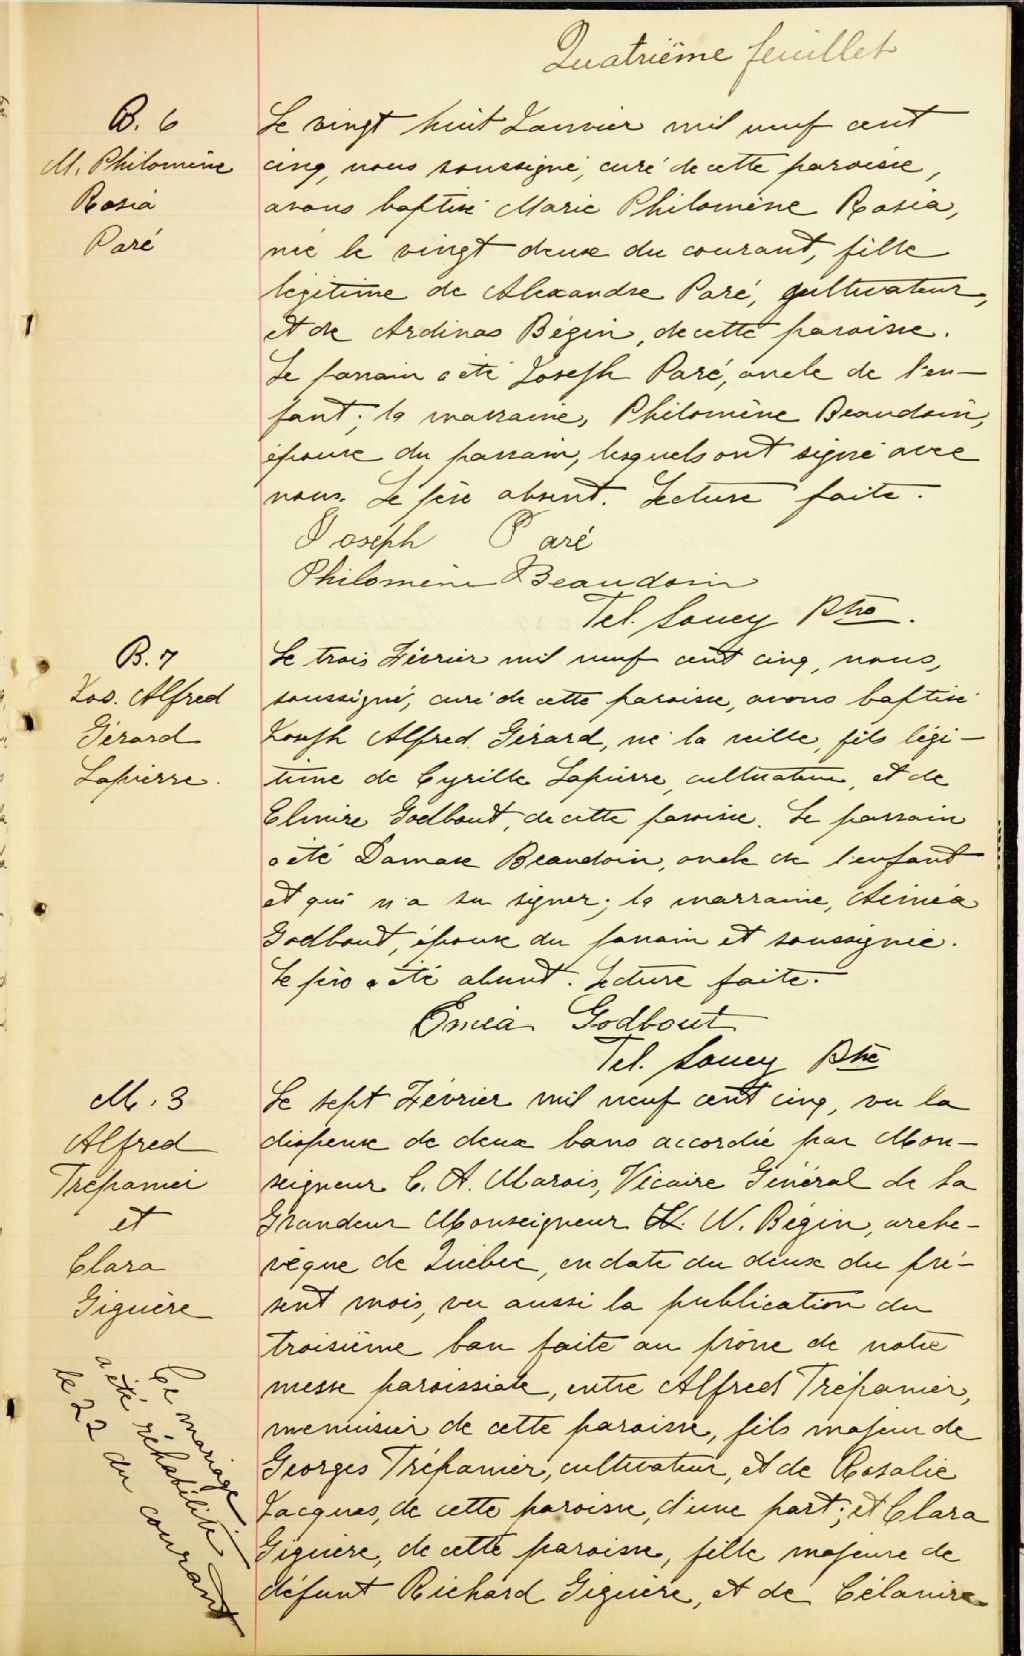 Quatrième feuillet
B. 6
M. Philomène
Rosia
Paré
Le vingt huit Janvier mil neuf cent
cinq, nous soussigné, curé de cette paroisse,
avons baptisé Marie Philomène Rosia,
née le vingt deux du courant, fille
légitime de Alexandre Paré, cultivateur,
et de Ardinas Bégin, de cette paroisse.
Le parrain a été Joseph Paré, oncle de l'en-
fant; la marraine, Philomène Beaudoin,
épouse du parrain, lesquels ont signé avec
nous. Le père absent. Lecture faite.
Joseph Paré
Philomène Beaudoin
Tel. Soucy Ptre.
B. 7
Jos. Alfred
Gérard
Lapierre.
Le trois Février mil neuf cent cinq, nous,
soussigné, curé de cette paroisse, avons baptisé
Joseph Alfred Gérard, né la veille, fils légi-
time de Cyrille Lapierre, cultivateur, et de
Elmire Godbout, de cette paroisse. Le parrain
a été Damase Beaudoin, oncle de l'enfant
et qui n'a su signer; la marraine,
Godbout, épouse du parrain et soussignée.
Le père a été absent. Lecture faite.
Eméa Godbout
Tel. Soucy Ptre
M. 3
Alfred
Trépanier
et
Clara
Giguère
Ce mariage
a été réhabilité
le 22 du courant
Le sept Février mil neuf cent cinq, vu la
dispense de deux bans accordée par Mon-
seigneur C. A. Marois, Vicaire Général de Sa
Grandeur Monseigneur L. N. Bégin, arche-
vêque de Québec, en date du deux du pré-
sent mois, vu aussi la publication du
troisième ban faite au prône de notre
messe paroissiale, entre Alfred Trépanier,
menuisier de cette paroisse, fils majeur de
Georges Trépanier, cultivateur, et de Rosalie
Jacques, de cette paroisse, d'une part; et Clara
Giguère, de cette paroisse, fille majeure de
défunt Richard Giguère, et de Célanire